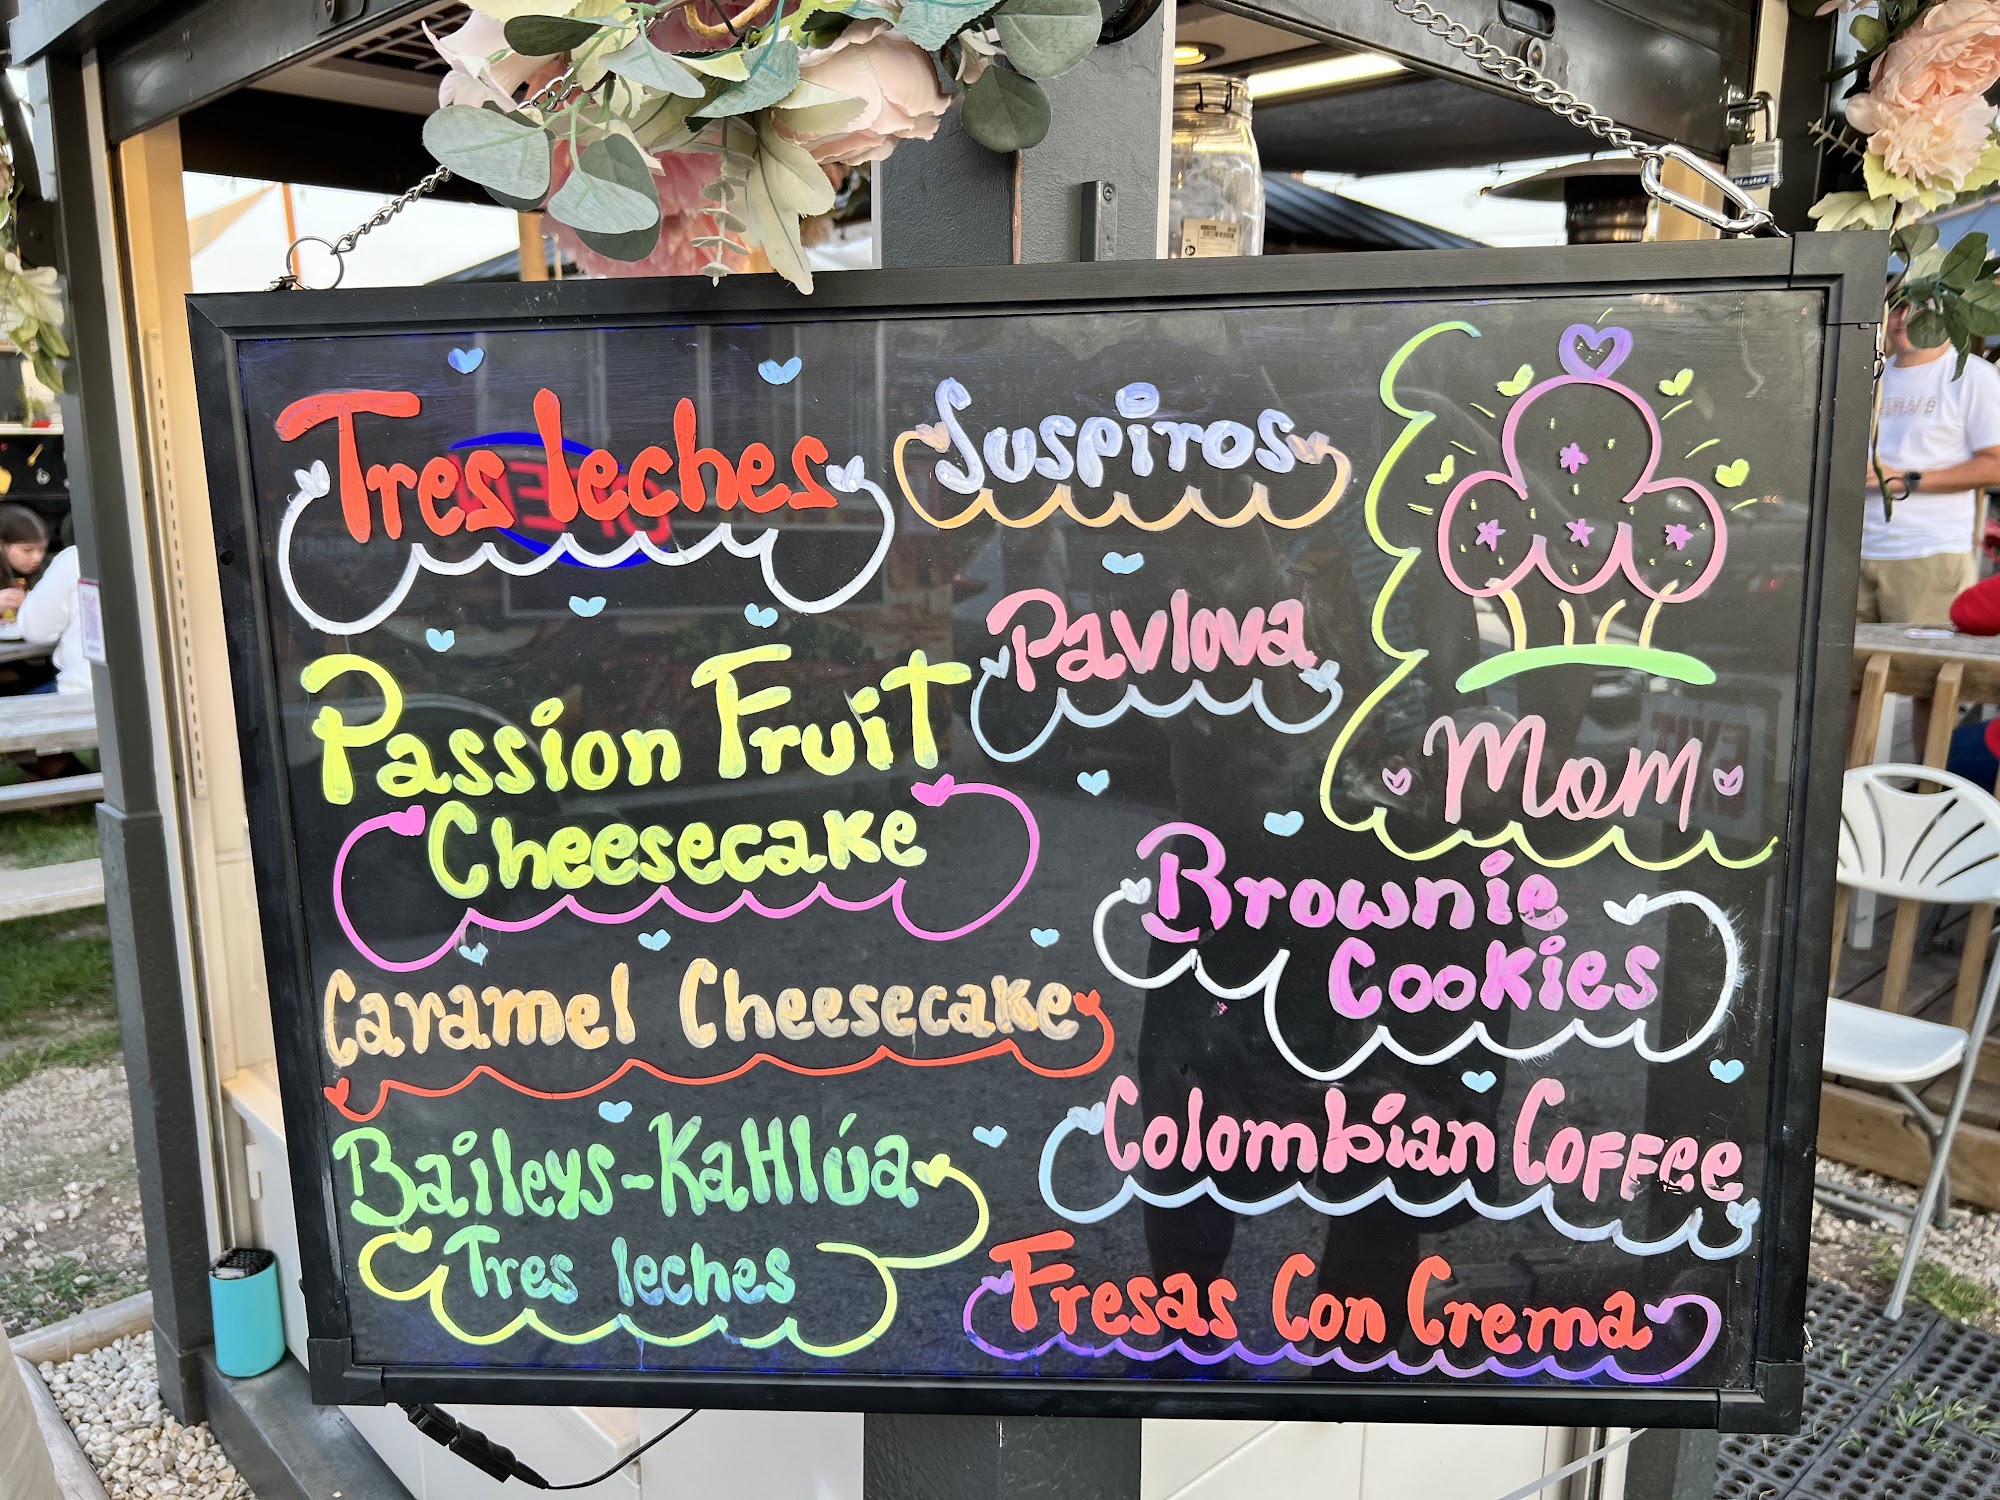 Tres leches
Passion Fruit
Cheesecake
Caramel Cheesecake
Baileys-KaHlúa
Tres leches
Suspiros
Pavlova
Mom
Brownie
Cookies
Colombian Coffee
Fresas Con Crema
OPEN
Master